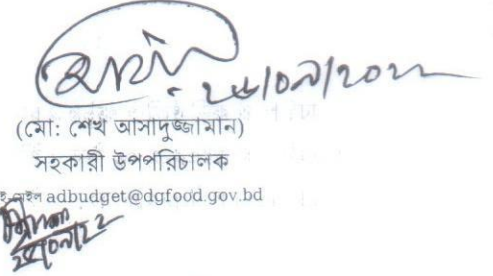 ২৬/০৯/২০২২
(মো: শেখ আসাদুজ্জামান)
সহকারী উপপরিচালক
ই-মেইল adbudget@dgfood.gov.bd